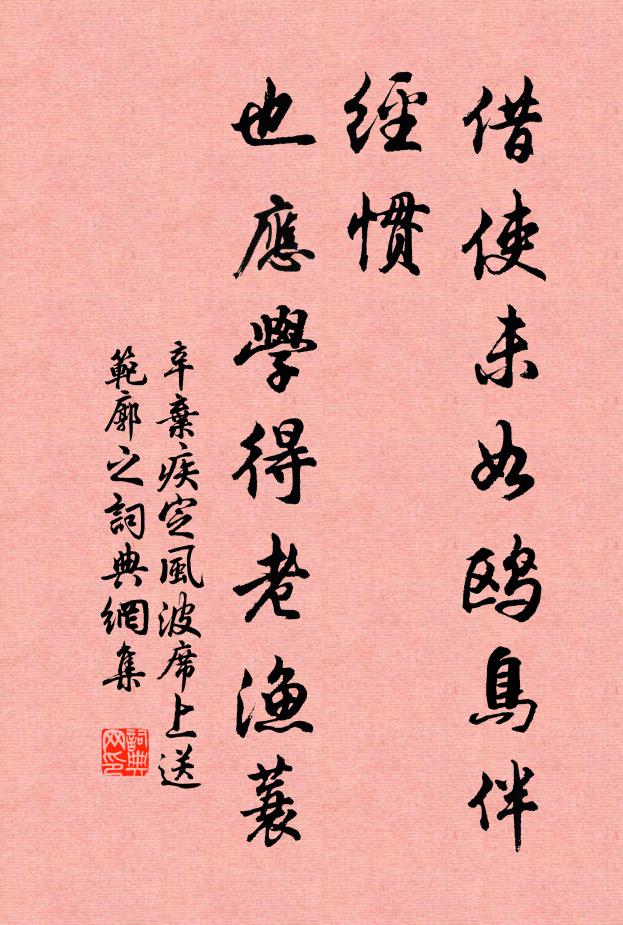 借使未如鸥鳥伴
經慣
也應學得老漁蓑
辛棄疾定風波席上送
範廓之詞典網集
詞典
网印